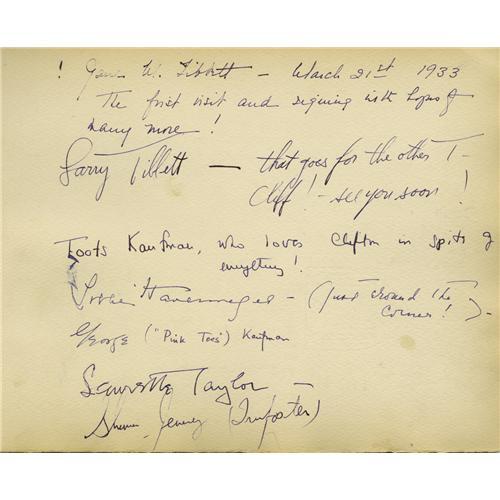 ! Jane W. Tibbett - March 21st 1933
The first visit and signing with hopes of
many more!
Larry Tibbett — that goes for the other T-
Cliff! - see you soon!
Toots Kaufman, who loves Clifton in spite of
everything!
(just around the
corner!)-
George ("Pink Toes") Kaufman
Laurette Taylor —
(Imposter)